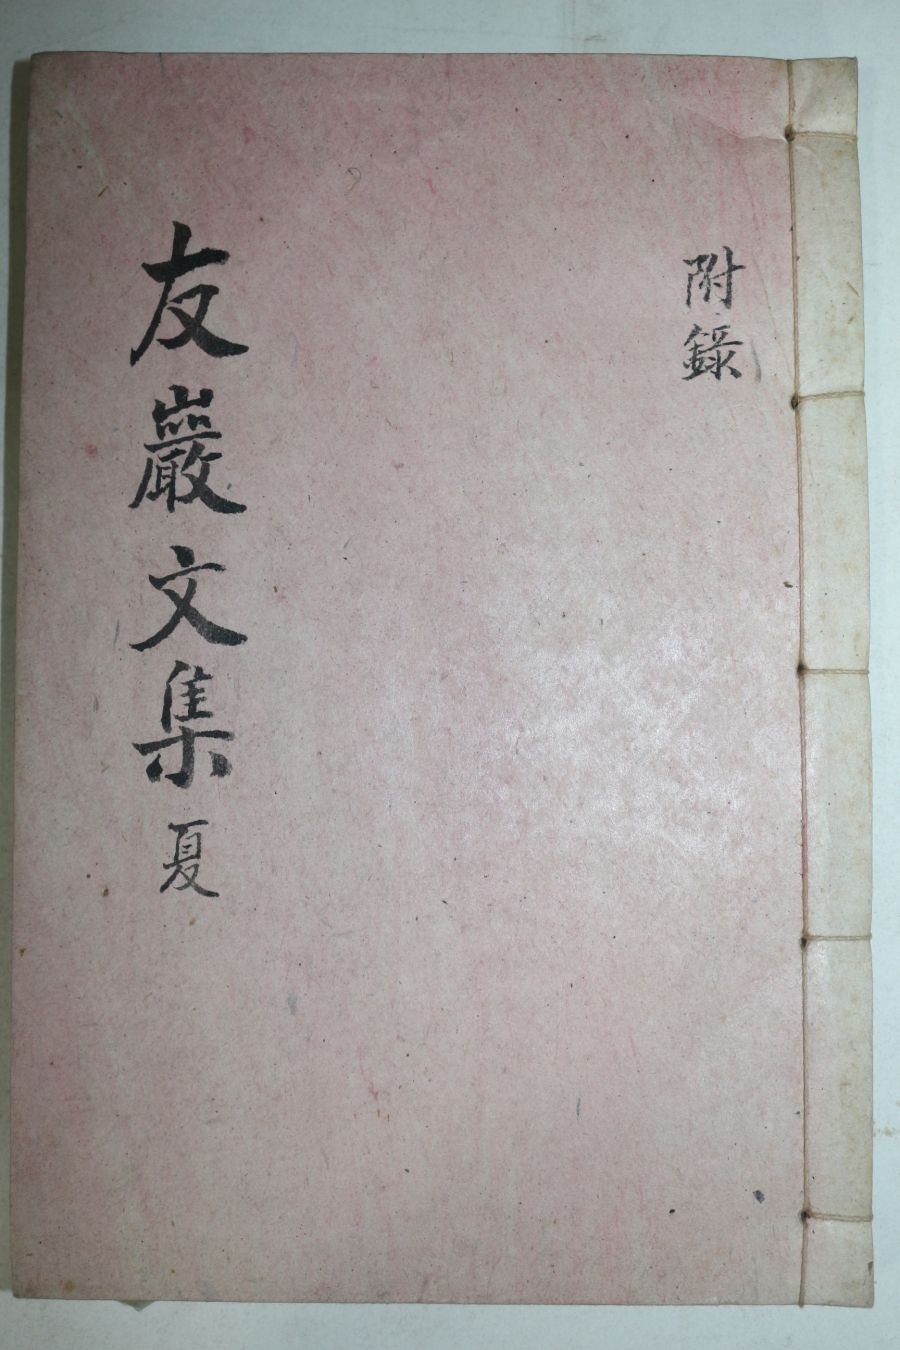 附錄
友巖文集 夏